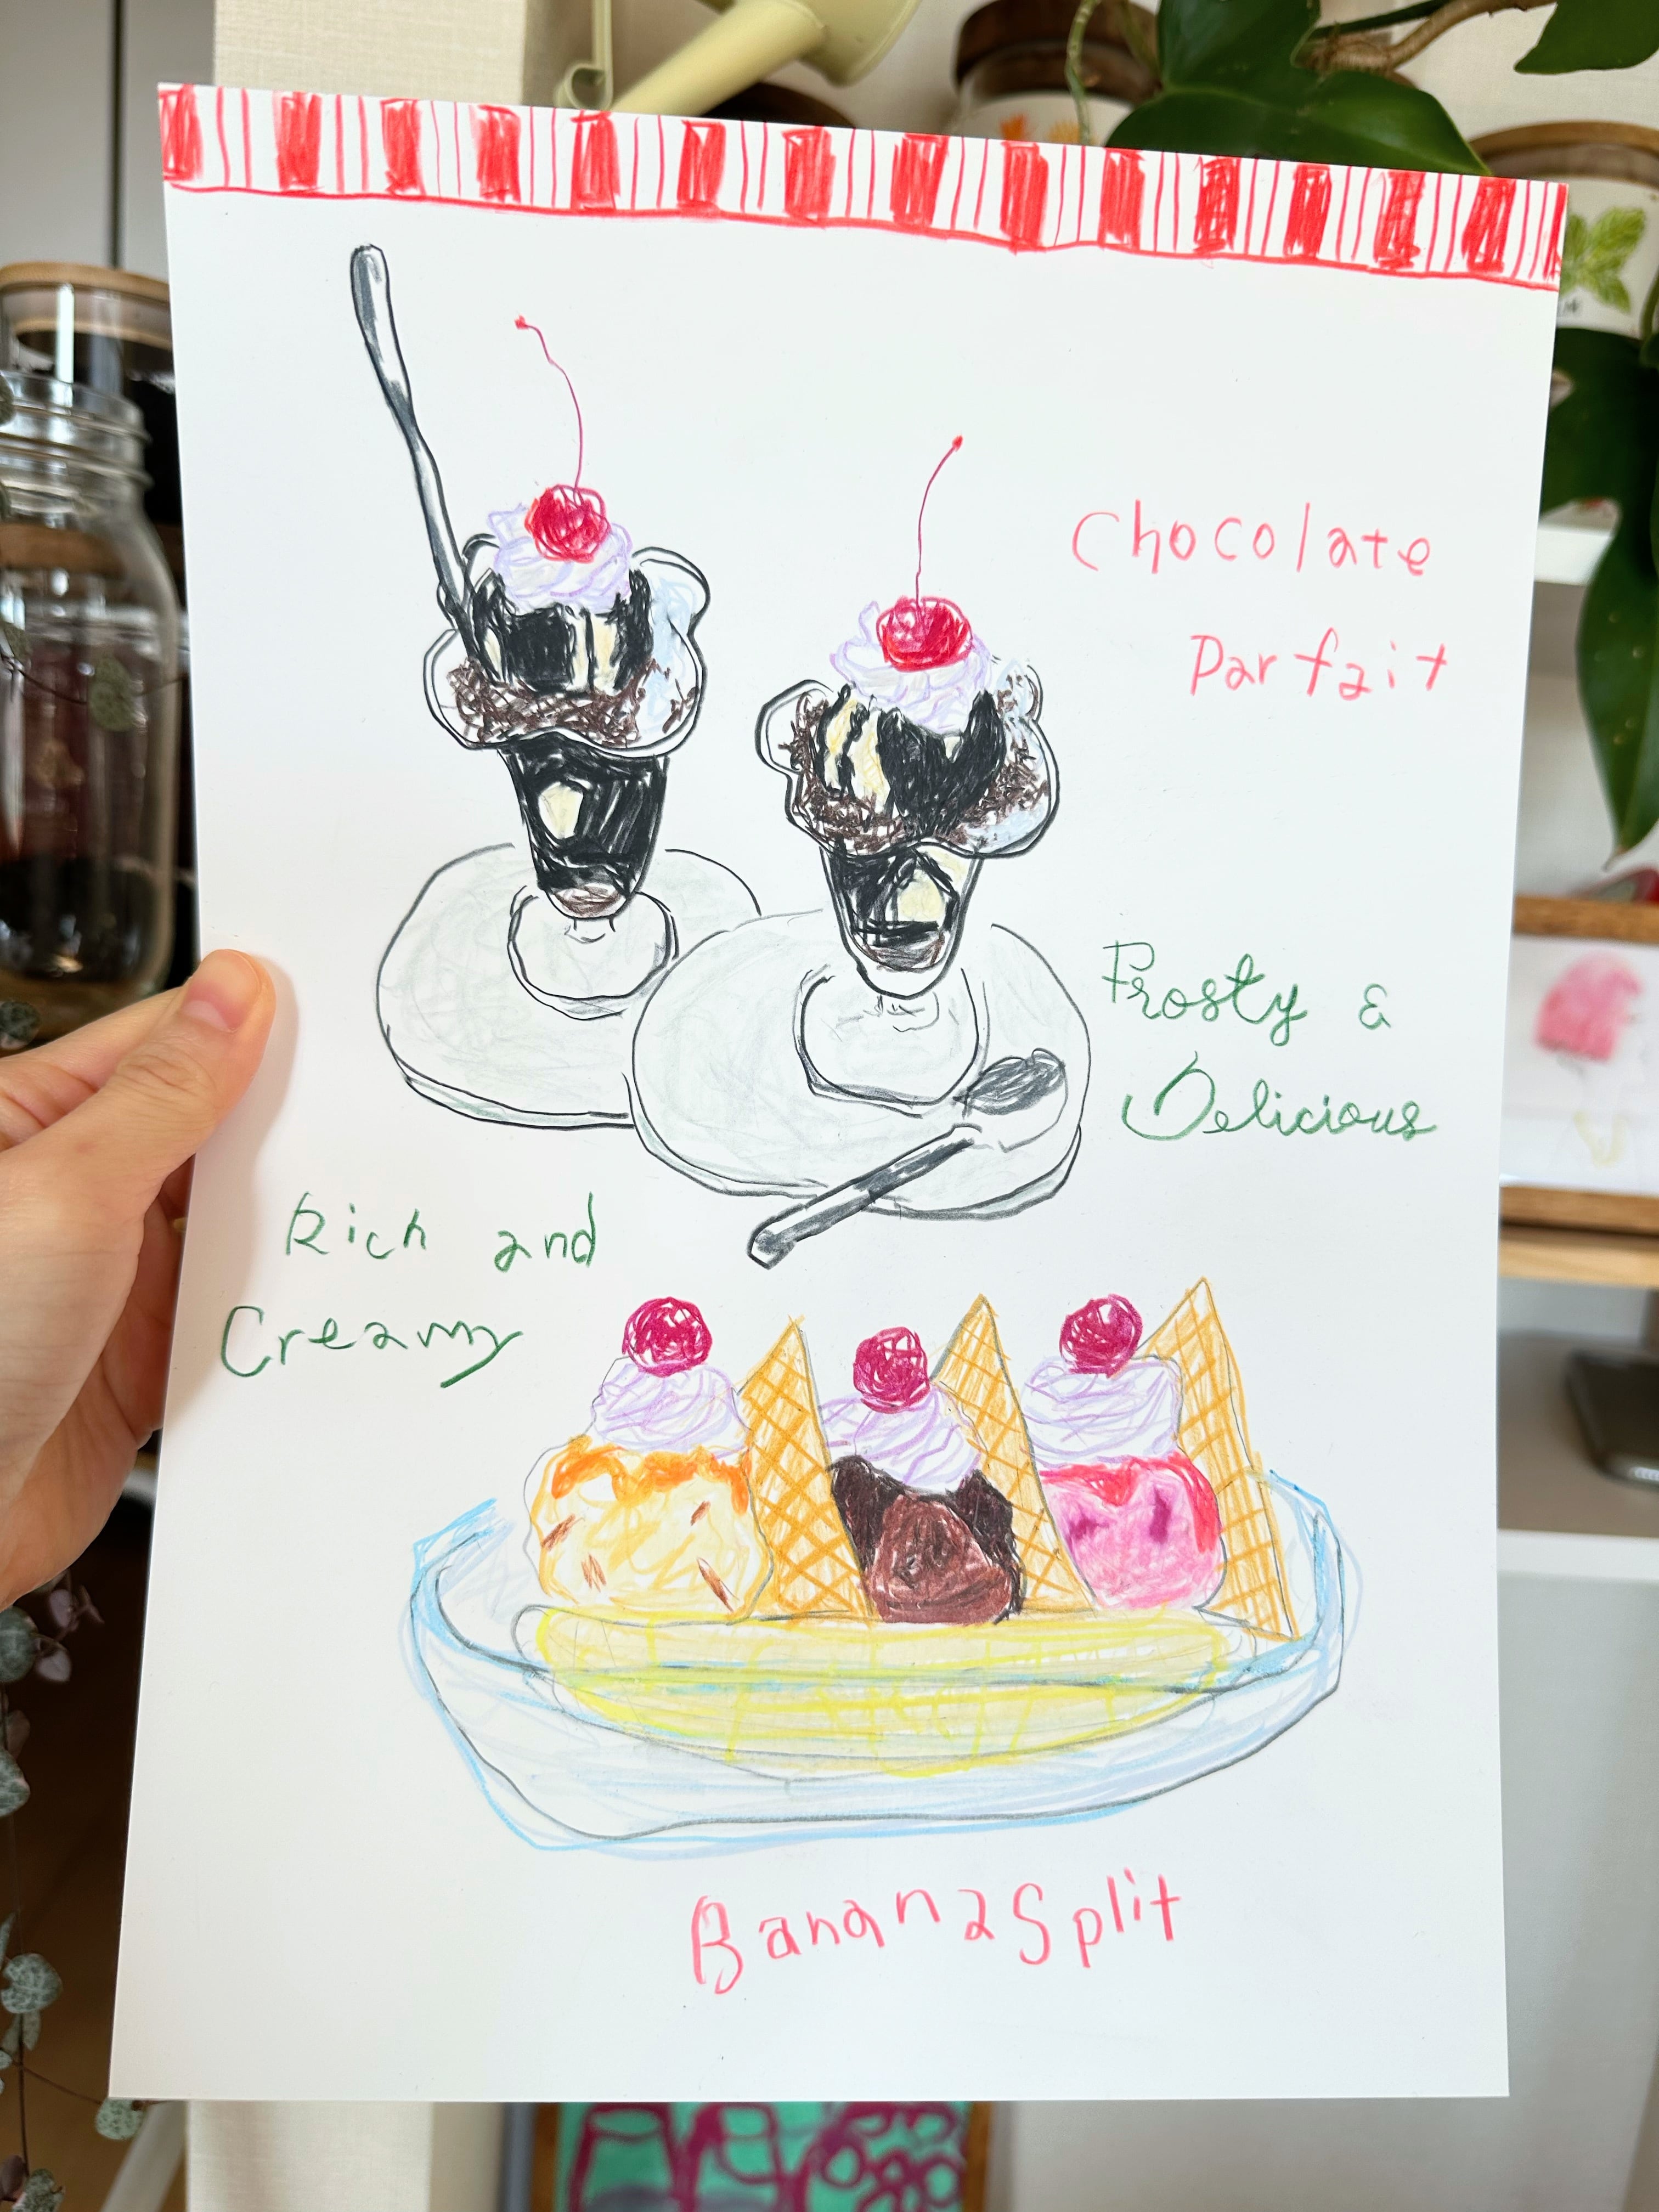 Chocolate
Parfait
Frosty &
Delicious
Rich and
Creamy
Banana Split